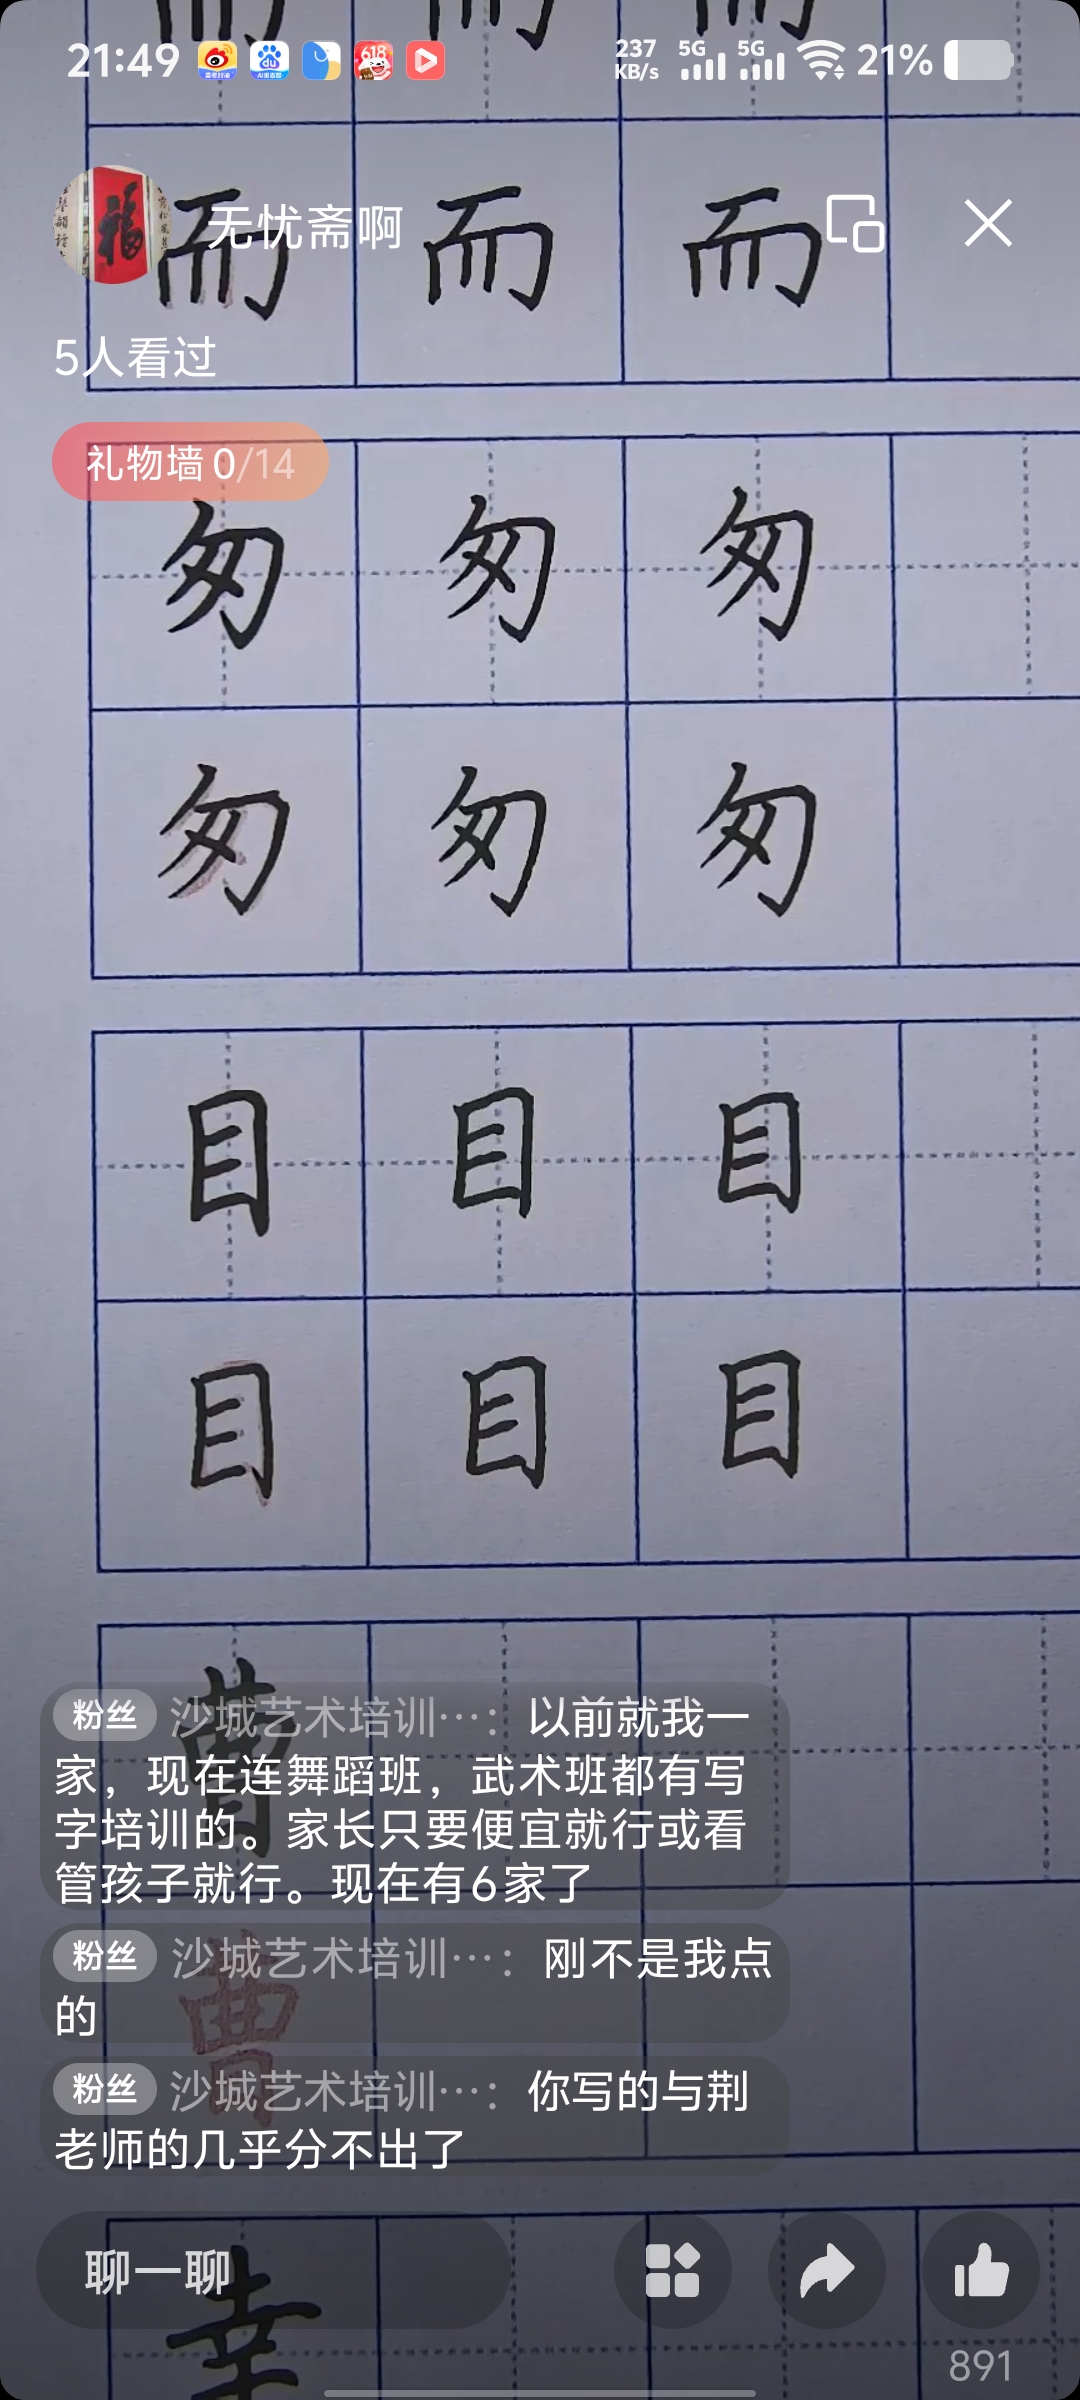 21:49
618
237
KB/s
5G
5G
21%
而 而 而
无忧斋啊
5人看过
礼物墙 0/14
匆 匆 匆
匆 匆 匆
目 目 目
目 目 目
曹
粉丝 沙城艺术培训…：以前就我一
家，现在连舞蹈班，武术班都有写
字培训的。家长只要便宜就行或看
管孩子就行。现在有6家了
粉丝 沙城艺术培训…：刚不是我点
的
曹
粉丝 沙城艺术培训…：你写的与荆
老师的几乎分不出了
聊一聊
幸
891